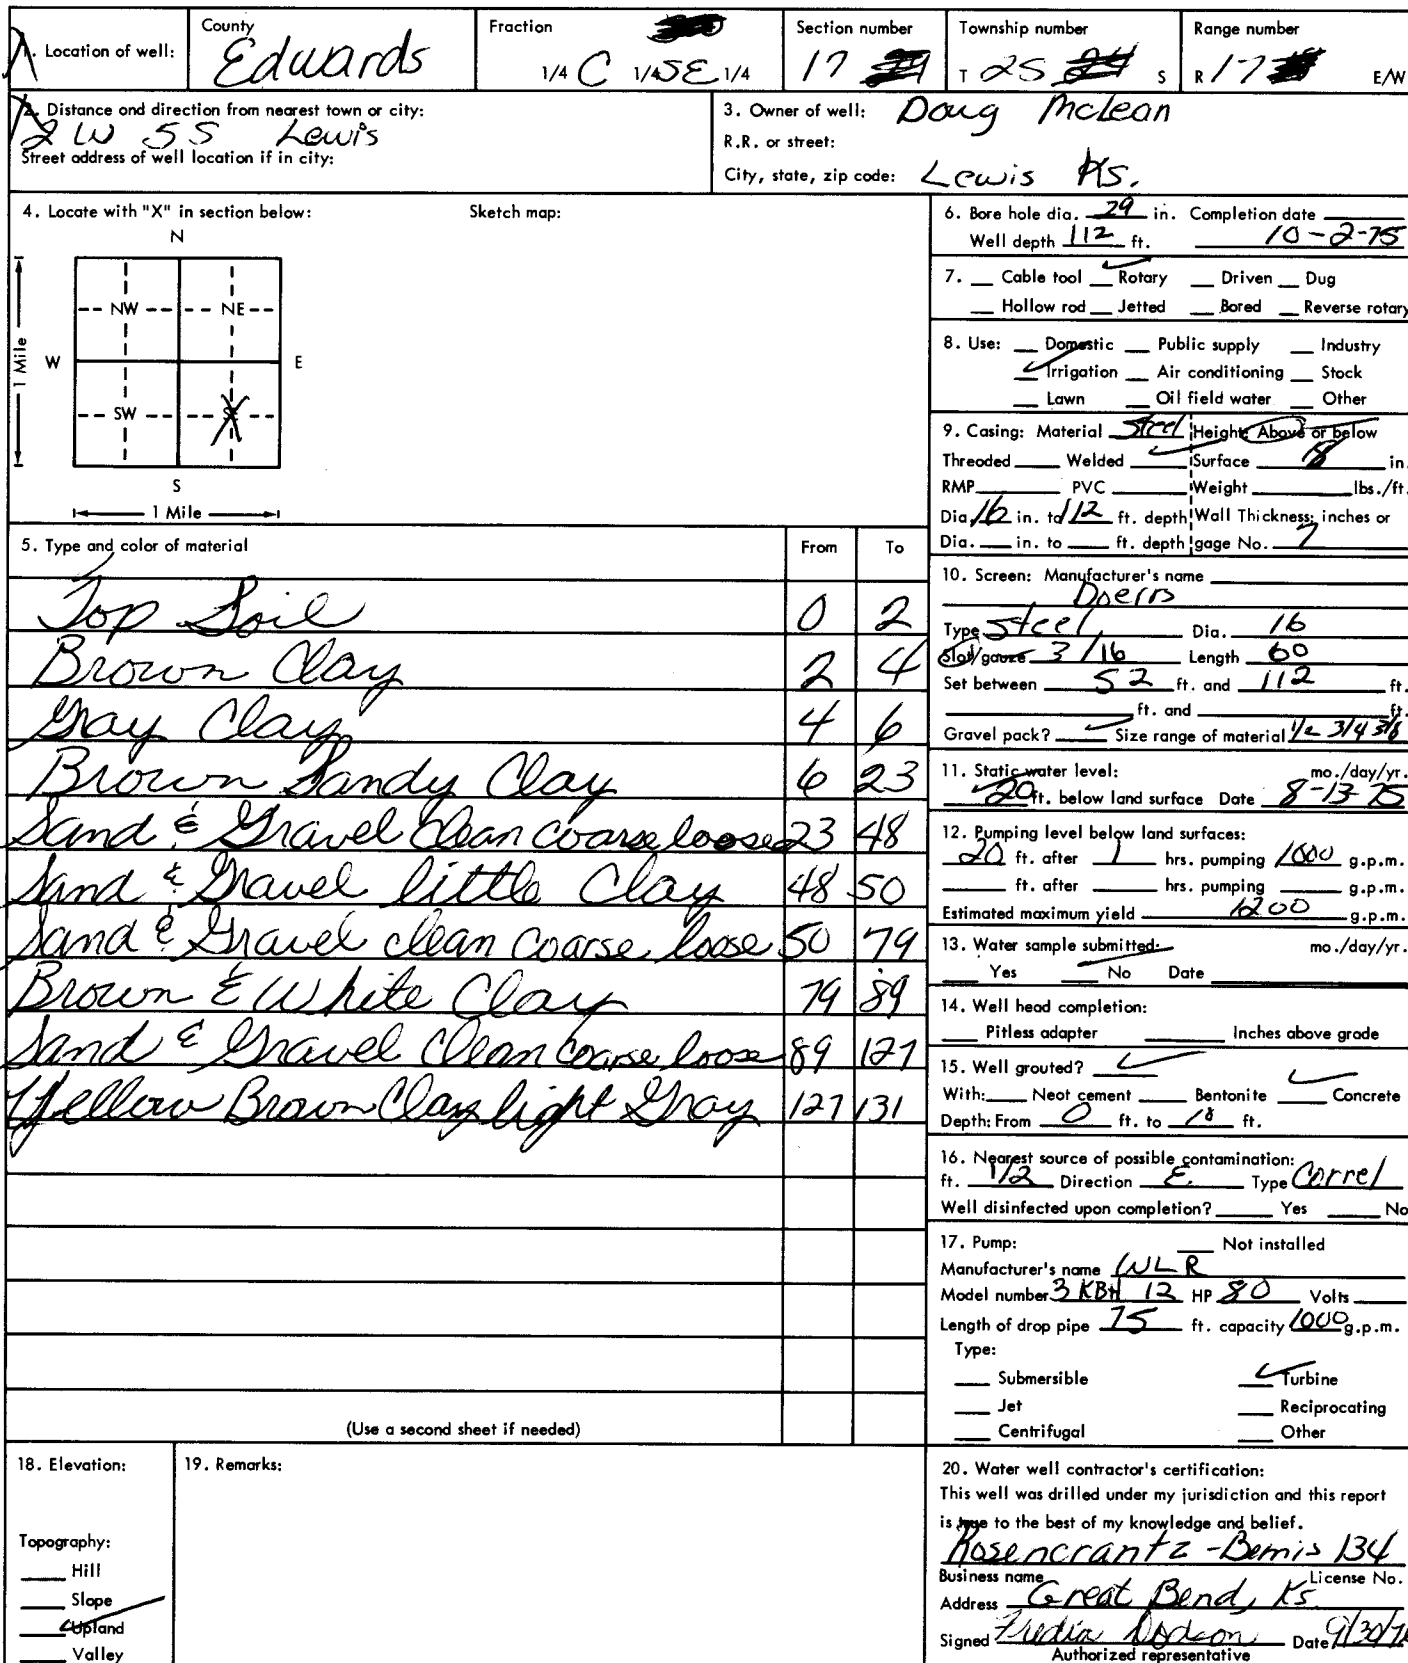 1. Location of well: County Edwards Fraction 1/4 C 1/4 SE 1/4 Section number 17 Township number T 25 S Range number R 17 E/W
2. Distance and direction from nearest town or city:
2 W 5 S Lewis
Street address of well location if in city:
3. Owner of well: Doug McLean
R.R. or street:
City, state, zip code: Lewis Ks.
4. Locate with "X" in section below: Sketch map:
N
NW NE
W E
1 Mile
SW SE
S
1 Mile
5. Type and color of material From To
Top Soil 0 2
Brown Clay 2 4
Gray Clay 4 6
Brown Sandy Clay 6 23
Sand & Gravel clean coarse loose 23 48
Sand & Gravel little Clay 48 50
Sand & Gravel clean coarse loose 50 79
Brown & White Clay 79 89
Sand & Gravel clean coarse loose 89 127
Yellow Brown Clay light Gray 127 131
(Use a second sheet if needed)
6. Bore hole dia. 29 in. Completion date
Well depth 112 ft. 10-2-75
7. Cable tool ✓ Rotary Driven Dug
Hollow rod Jetted Bored Reverse rotary
8. Use: Domestic Public supply Industry
✓ Irrigation Air conditioning Stock
Lawn Oil field water Other
9. Casing: Material Steel Height: Above or below
Threaded Welded ✓ Surface 18 in.
RMP PVC Weight lbs./ft.
Dia. 16 in. to 112 ft. depth Wall Thickness: inches or
Dia. in. to ft. depth gage No. 7
10. Screen: Manufacturer's name
Doerrs
Type Steel Dia. 16
Slot/gauze 3/16 Length 60
Set between 52 ft. and 112 ft.
ft. and ft.
Gravel pack? ✓ Size range of material 1/2 3/4 3/8
11. Static water level: mo./day/yr.
20 ft. below land surface Date 8-13-75
12. Pumping level below land surfaces:
20 ft. after 1 hrs. pumping 1000 g.p.m.
ft. after hrs. pumping g.p.m.
Estimated maximum yield 1200 g.p.m.
13. Water sample submitted: mo./day/yr.
Yes ✓ No Date
14. Well head completion:
Pitless adapter Inches above grade
15. Well grouted? ✓
With: Neat cement Bentonite ✓ Concrete
Depth: From 0 ft. to 18 ft.
16. Nearest source of possible contamination:
ft. 1/2 Direction E. Type Correl
Well disinfected upon completion? Yes No
17. Pump: Not installed
Manufacturer's name WLR
Model number 3 KBH 12 HP 80 Volts
Length of drop pipe 75 ft. capacity 1000 g.p.m.
Type:
Submersible ✓ Turbine
Jet Reciprocating
Centrifugal Other
18. Elevation:
Topography:
Hill
Slope
✓ Upland
Valley
19. Remarks:
20. Water well contractor's certification:
This well was drilled under my jurisdiction and this report
is true to the best of my knowledge and belief.
Rosencrantz-Bemis 134
Business name License No.
Address Great Bend, Ks
Signed Fredia Dodson Date 9/30/76
Authorized representative